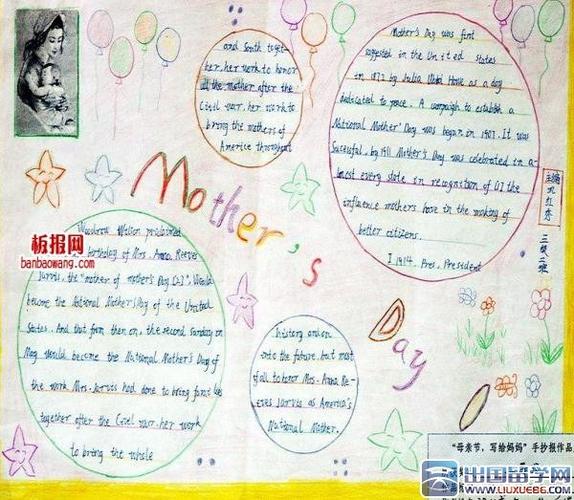 Mother's Day was first
suggested in the United states
in 1872 by Julia Howe as a day
dedicated to peace. A campaign to establish a
National Mother' Day was began in 1907. It was
Sucessful, by 1911 Mother's Day was celebrated in a-
lmost every state in recognition of the
influence mothers have in the making of
better citizens.
I 1914. Pres. President
and South toget-
her. her work to honor
all the mother after the
Civil warr. her work to
bring the mothers of
America throughout
Mother's
Day
Woodrow Wilson proclaimed
birthday of Mrs. Anna. Reeves
Jarvis, the "mother of mother's Day Would
become the National Mother's Day of the United
States. And that form then on, the second Sunday on
May Would become the National Mother's Day of
the work Mrs. Jarvis had done to bring
together after the Civil warr. her work
to bring the whole
history and on
into the future. but most
of all to honor Mrs. Anna Re-
eves Jarvis as America's
National Mother.
三.二班
板报网
banbaowang.com
"母亲节,写给妈妈"手抄报作品
出国留学网
www.liuxue86.com